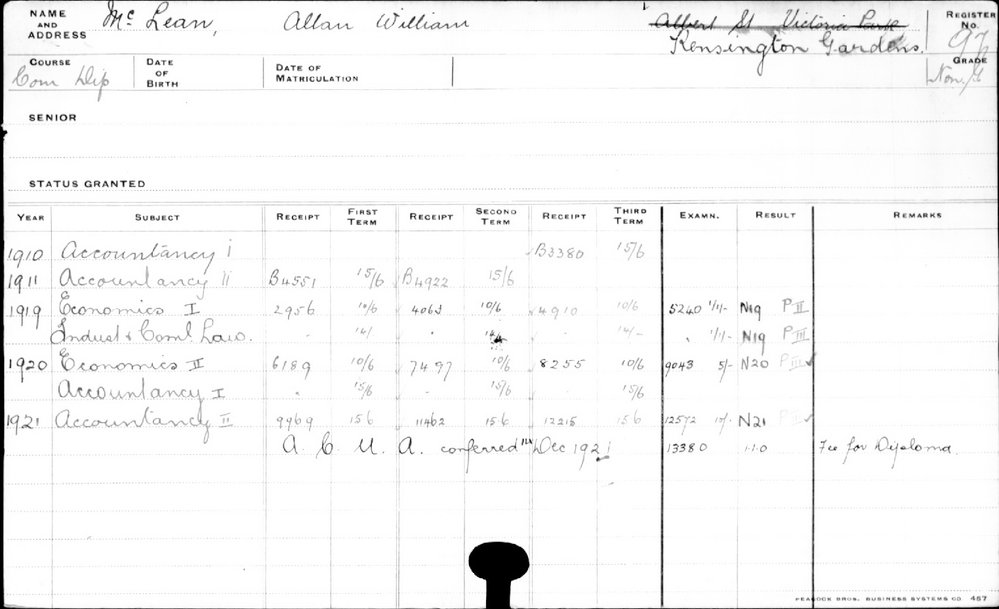 NAME AND ADDRESS Mc Lean, Allan William Albert St Victoria Park REGISTER No. 97
Kensington Gardens.
COURSE Com Dip DATE OF BIRTH DATE OF MATRICULATION GRADE Non/G
SENIOR
STATUS GRANTED
YEAR SUBJECT RECEIPT FIRST TERM RECEIPT SECOND TERM RECEIPT THIRD TERM EXAMN. RESULT REMARKS
1910 Accountancy I B3380 15/6
1911 Accountancy II B4551 15/6 B4922 15/6
1919 Economics I 2956 10/6 4063 10/6 4910 10/6 5240 1/1/- N19 P III
Indust & Coml Law. " 14/ " 14/- " 14/- " 1/1/- N19 P III
1920 Economics II 6189 10/6 7497 10/6 8255 10/6 9043 5/- N20 P III ✓
Accountancy I " 15/6 15/6 15/6
1921 Accountancy II 9469 15 6 11462 15 6 12215 15 6 12572 N21 P II ✓
A. C. U. A. conferred Dec 1921 13380 1.1.0 Fee for Diploma.
PEACOCK BROS. BUSINESS SYSTEMS CO 457